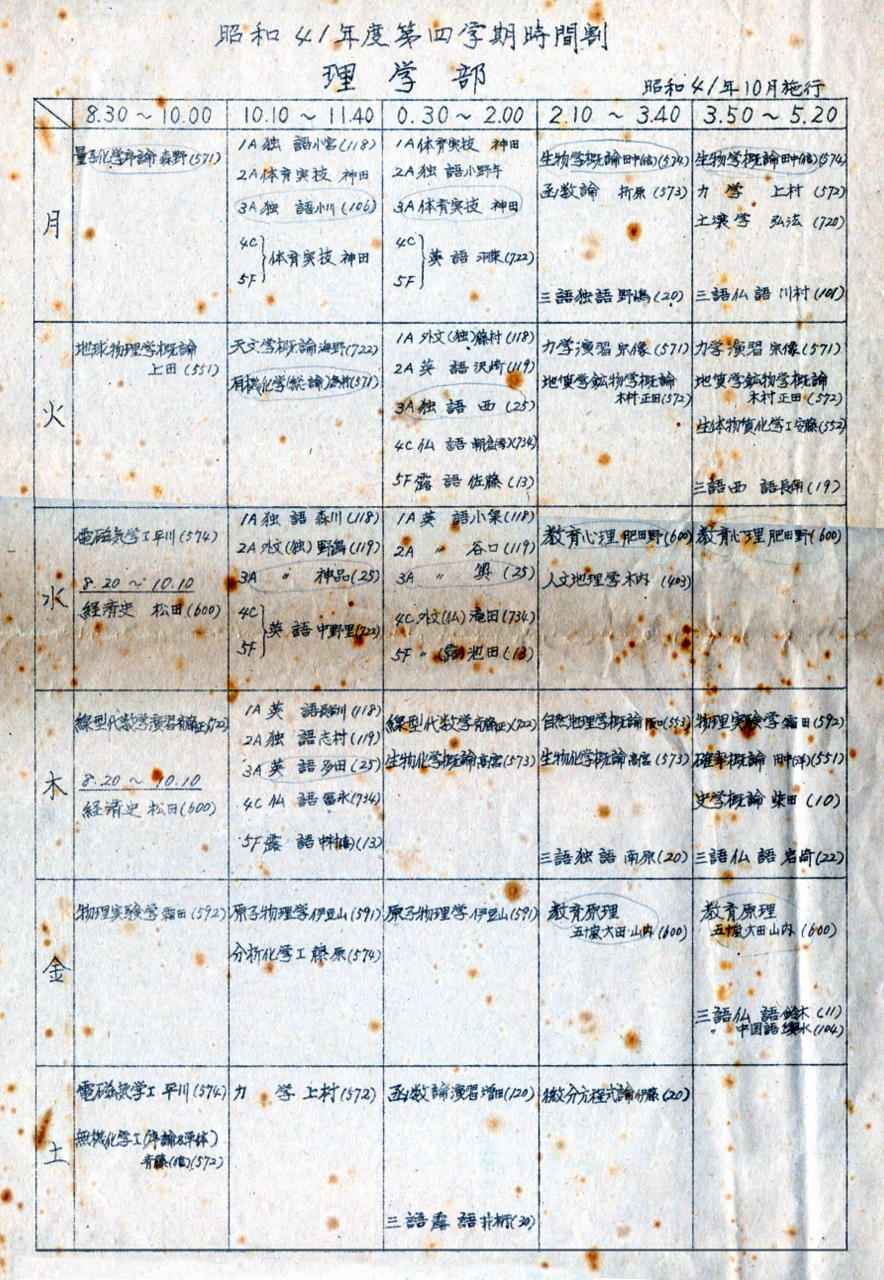 昭和41年度第四学期時間割
理学部
昭和41年10月施行
8.30 ~ 10.00
10.10 ~ 11.40
0.30 ~ 2.00
2.10 ~ 3.40
3.50 ~ 5.20
月
量子化学序論 森野(571)
1A 独語 小宮(118)
2A 体育実技 神田
3A 独語 小川(106)
4C
5F
体育実技 神田
1A 体育実技 神田
2A 独語 小野寺
3A 体育実技 神田
4C
5F
英語 (722)
生物学概論 田中(信)(574)
函数論 折原(573)
三語独語 野嶋(20)
生物学概論 田中(信)(574)
力学 上村(572)
土壌学 弘法(720)
三語仏語 川村(101)
火
地球物理学概論
上田(551)
天文学概論 海野(722)
有機化学(総論) (571)
1A 外文(独) 藤村(118)
2A 英語 沢崎(119)
3A 独語 西(25)
4C 仏語 朝倉(季)(734)
5F 露語 佐藤(13)
力学演習 宗像(571)
地質学鉱物学概論
木村 正田(572)
力学演習 宗像(571)
地質学鉱物学概論
木村 正田(572)
生体物質化学I 安藤(552)
三語西語 長南(19)
水
電磁気学I 平川(574)
8.20 ~ 10.10
経済史 松田(600)
1A 独語 森川(118)
2A 外文(独) 野嶋(119)
3A 〃 神品(25)
4C
5F
英語 中野里(722)
1A 英語 小泉(118)
2A 〃 谷口(119)
3A 〃 奥(25)
4C 外文(仏) 滝田(734)
5F 〃(露) 池田(13)
教育心理 肥田野(600)
人文地理学 木内(403)
教育心理 肥田野(600)
木
線型代数学演習 斉藤(正)(722)
8.20 ~ 10.10
経済史 松田(600)
1A 英語 長谷川(118)
2A 独語 志村(119)
3A 英語 多田(25)
4C 仏語 冨永(734)
5F 露語 (13)
線型代数学 斉藤(正)(722)
生物化学概論 高宮(573)
自然地理学概論 阪口(553)
生物化学概論 高宮(573)
三語独語 南原(20)
物理実験学 霜田(592)
確率概論 田中(洋)(551)
史学概論 柴田(10)
三語仏語 岩崎(22)
金
物理実験学 霜田(592)
原子物理学 伊豆山(591)
分析化学I 藤原(574)
原子物理学 伊豆山(591)
教育原理
五十嵐 大田 山内(600)
教育原理
五十嵐 大田 山内(600)
三語仏語 鈴木(11)
〃 中国語 (104)
土
電磁気学I 平川(574)
無機化学I(序論及単体)
斉藤(信)(572)
力学 上村(572)
函数論演習 増田(120)
三語露語 井桁(30)
微分方程式論 伊藤(20)